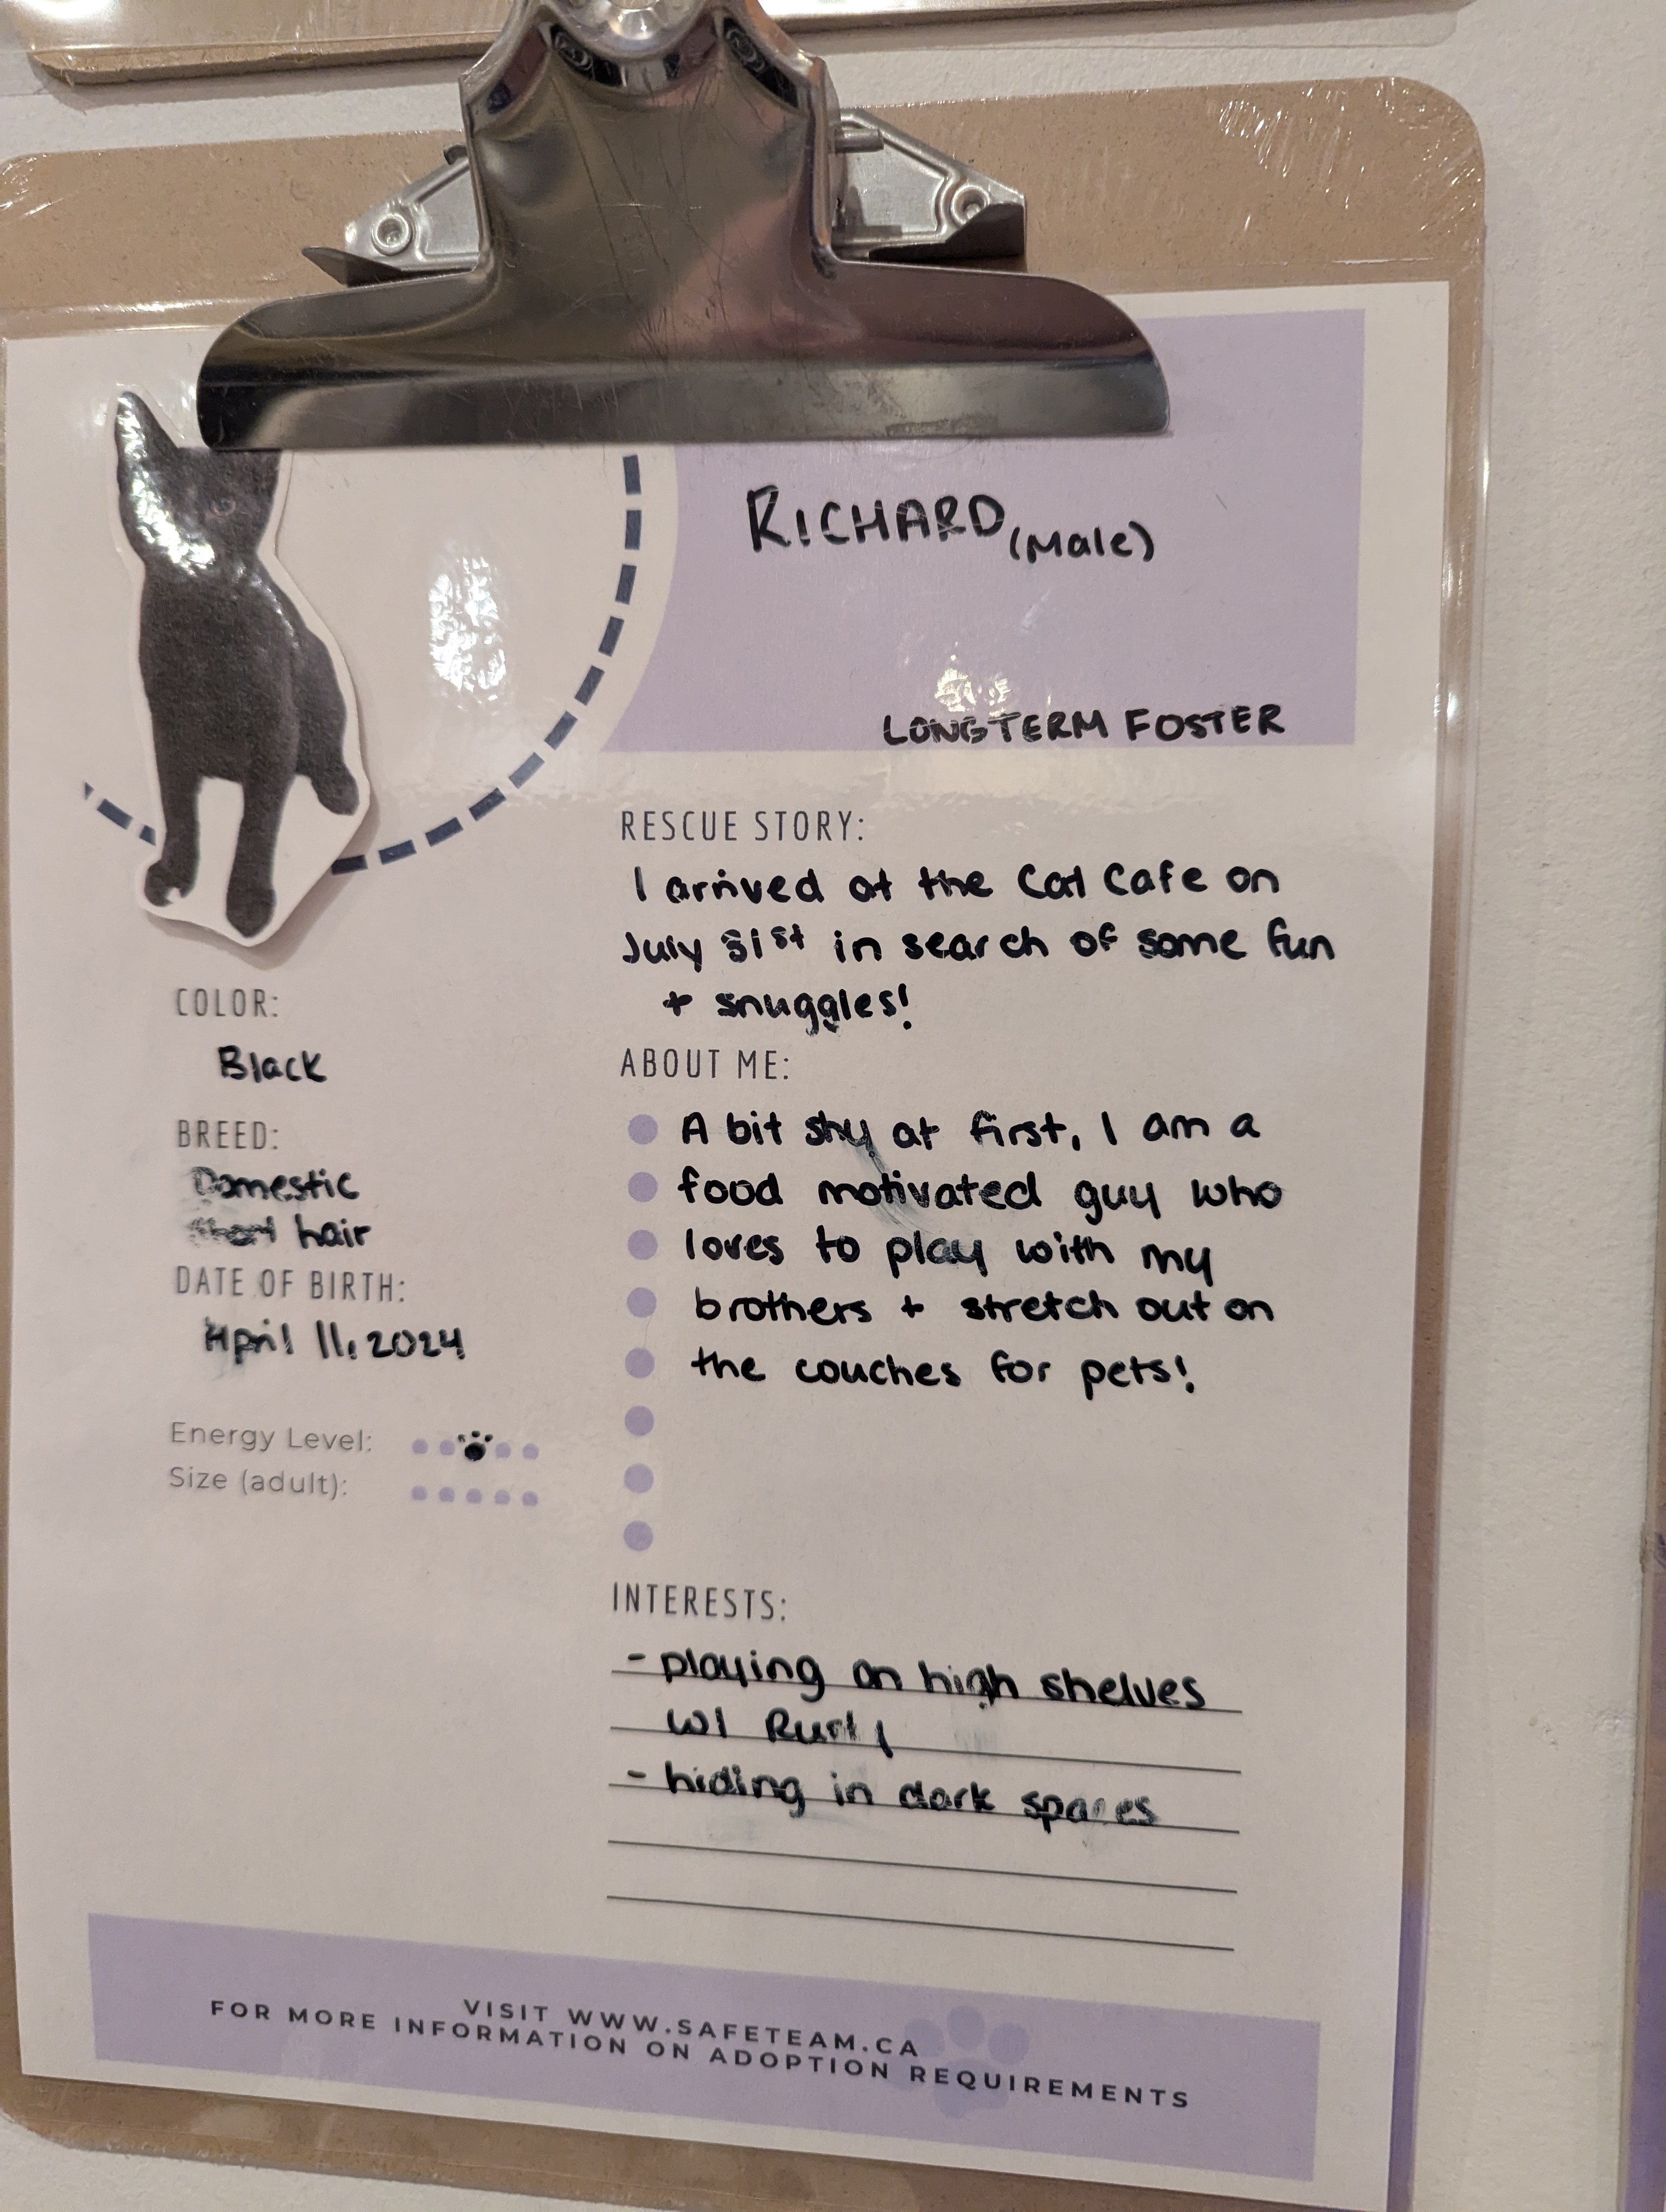 RICHARD (Male)
LONGTERM FOSTER
COLOR:
Black
BREED:
Domestic
Short hair
DATE OF BIRTH:
April 11, 2024
Energy Level:
Size (adult):
RESCUE STORY:
I arrived at the Cat Cafe on
July 31st in search of some fun
+ snuggles!
ABOUT ME:
A bit shy at first, I am a
food motivated guy who
loves to play with my
brothers + stretch out on
the couches for pets!
INTERESTS:
- playing on high shelves
w/
- hiding in dark spaces
VISIT WWW.SAFETEAM.CA
FOR MORE INFORMATION ON ADOPTION REQUIREMENTS